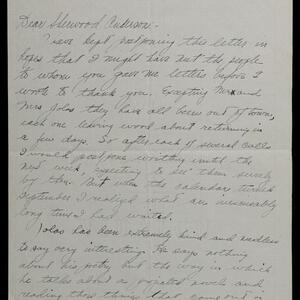 Dear Sherwood Anderson:-
I have kept postponing this letter in
hopes that I might have met the people
to whom you gave me letters before I
wrote to thank you. Excepting Mr and
Mrs Jolas they have all been out of town,
each one leaving word about returning in
a few days. So after each of several calls
I would postpone writing until the
next week, expecting to see them surely
by then. But when the calendar turned
September I realized what an inexcusably
long time I had waited.
Jolas has been extremely kind and needless
to say very interesting. He says nothing
about his poetry but the way in which
he talks about a populist novels and
reading those things that